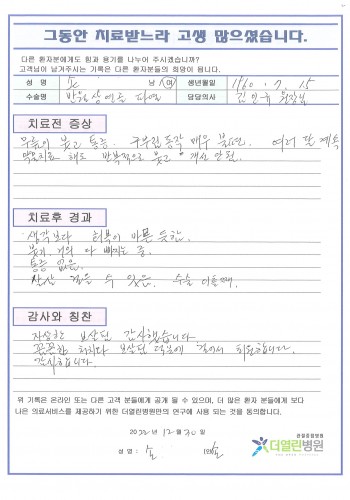 그동안 치료받느라 고생 많으셨습니다.
다른 환자분에게도 힘과 용기를 나누어 주시겠습니까?
고객님이 남겨주시는 기록은 다른 환자분들의 희망이 됩니다.
성 명 손 남 여 생년월일 1960. 7. 15
수술명 반월상연골 파열 담당의사 김 원장님
치료전 증상
무릎이 붓고 통증. 구부림동작 매우 불편. 여러 달 계속
약물치료 해도 반복적으로 붓고 개선 안됨.
치료후 경과
생각보다 회복이 빠른 듯함.
붓기 거의 다 빠지는 중.
통증 없음.
살살 걸을 수 있음. 수술 이틀째.
감사와 칭찬
자상한 보살핌 감사했습니다.
꼼꼼한 처치와 보살핌 덕분에 걸어서 퇴원합니다.
감사합니다.
위 기록은 온라인 또는 다른 고객 분들에게 공개 될 수 있으며, 더 많은 환자 분들에게 보다
나은 의료서비스를 제공하기 위한 더열린병원만의 연구에 사용 되는 것을 동의합니다.
2022년 12월 30일
성 명 : 손 (인)
관절종합병원
더열린병원